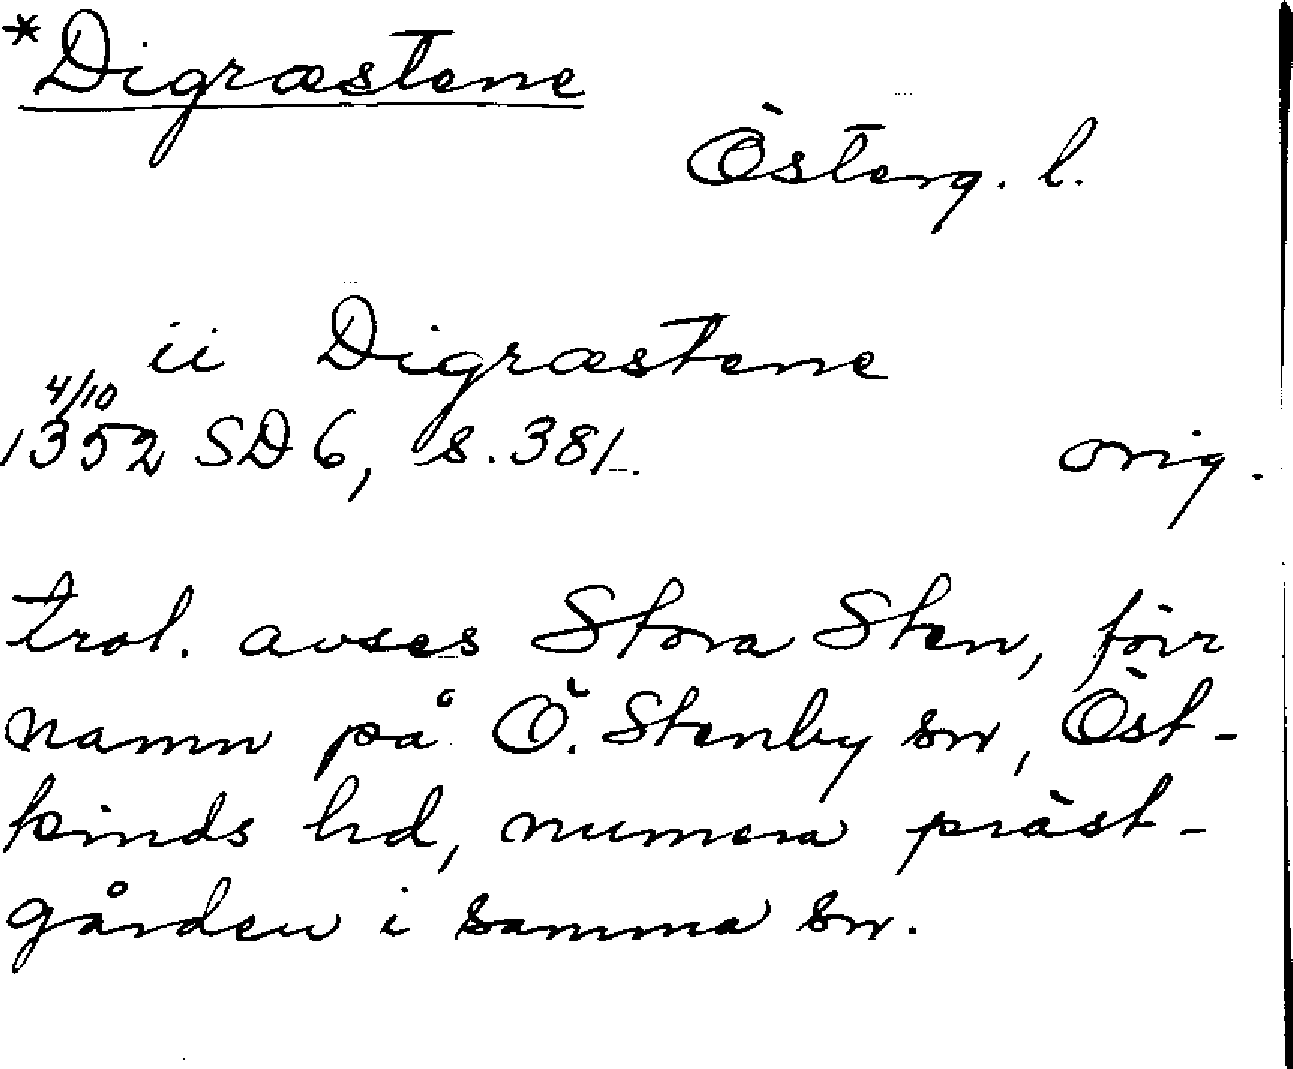 *Digræstene
Österg. l.
ii Digræstene
4/10
1352 SD 6, s. 381. orig.
trol. avses Stora Sten, förr
namn på Ö. Stenby sn, Öst-
kinds hd, numera präst-
gården i samma sn.